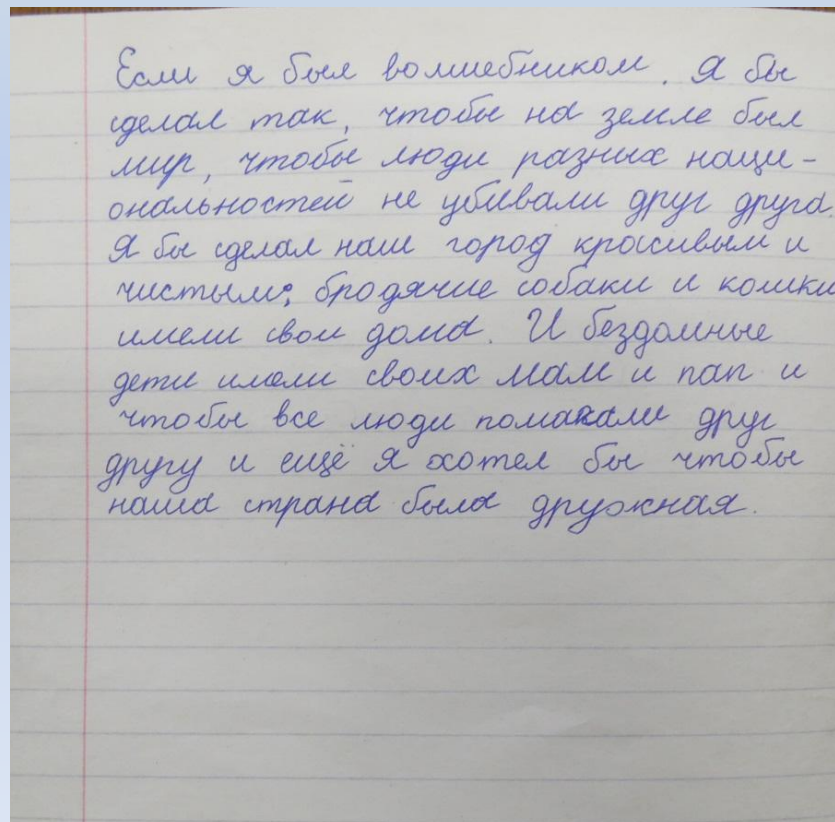 Если я был волшебником. Я бы
сделал так, чтобы на земле был
мир, чтобы люди разных наци-
ональностей не убивали друг друга.
Я бы сделал наш город красивым и
чистым; бродячие собаки и кошки
имели свои дома. И бездомные
дети имели своих мам и пап и
чтобы все люди помакали друг
другу и ещё я хотел бы чтобы
наша страна была дружная.